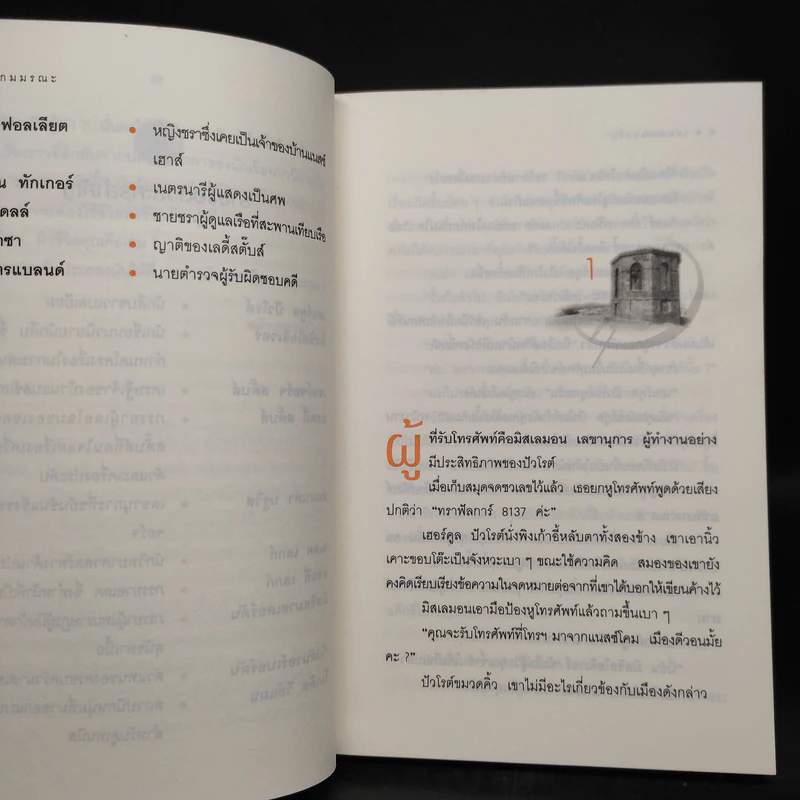 กมมรณะ
ฟอลเลียต
• หญิงชราซึ่งเคยเป็นเจ้าของบ้านแนสซ์
เฮาส์
น ทักเกอร์
• เนตรนารีผู้แสดงเป็นศพ
ดลล์
• ชายชราผู้ดูแลเรือที่สะพานเทียบเรือ
าซา
• ญาติของเลดี้สตั๊บส์
ารแบลนด์
• นายตำรวจผู้รับผิดชอบคดี
1
ผู้ที่รับโทรศัพท์คือมิสเลมอน เลขานุการ ผู้ทำงานอย่าง
มีประสิทธิภาพของปัวโรต์
เมื่อเก็บสมุดจดชวเลขไว้แล้ว เธอยกหูโทรศัพท์พูดด้วยเสียง
ปกติว่า “ทราฟัลการ์ 8137 ค่ะ”
เฮอร์คูล ปัวโรต์นั่งพิงเก้าอี้หลับตาทั้งสองข้าง เขาเอานิ้ว
เคาะขอบโต๊ะเป็นจังหวะเบา ๆ ขณะใช้ความคิด สมองของเขายัง
คงคิดเรียบเรียงข้อความในจดหมายต่อจากที่เขาได้บอกให้เขียนค้างไว้
มิสเลมอนเอามือป้องหูโทรศัพท์แล้วถามขึ้นเบา ๆ
“คุณจะรับโทรศัพท์ที่โทรฯ มาจากแนสซ์โคม เมืองดีวอนมั้ย
คะ ?”
ปัวโรต์ขมวดคิ้ว เขาไม่มีอะไรเกี่ยวข้องกับเมืองดังกล่าว